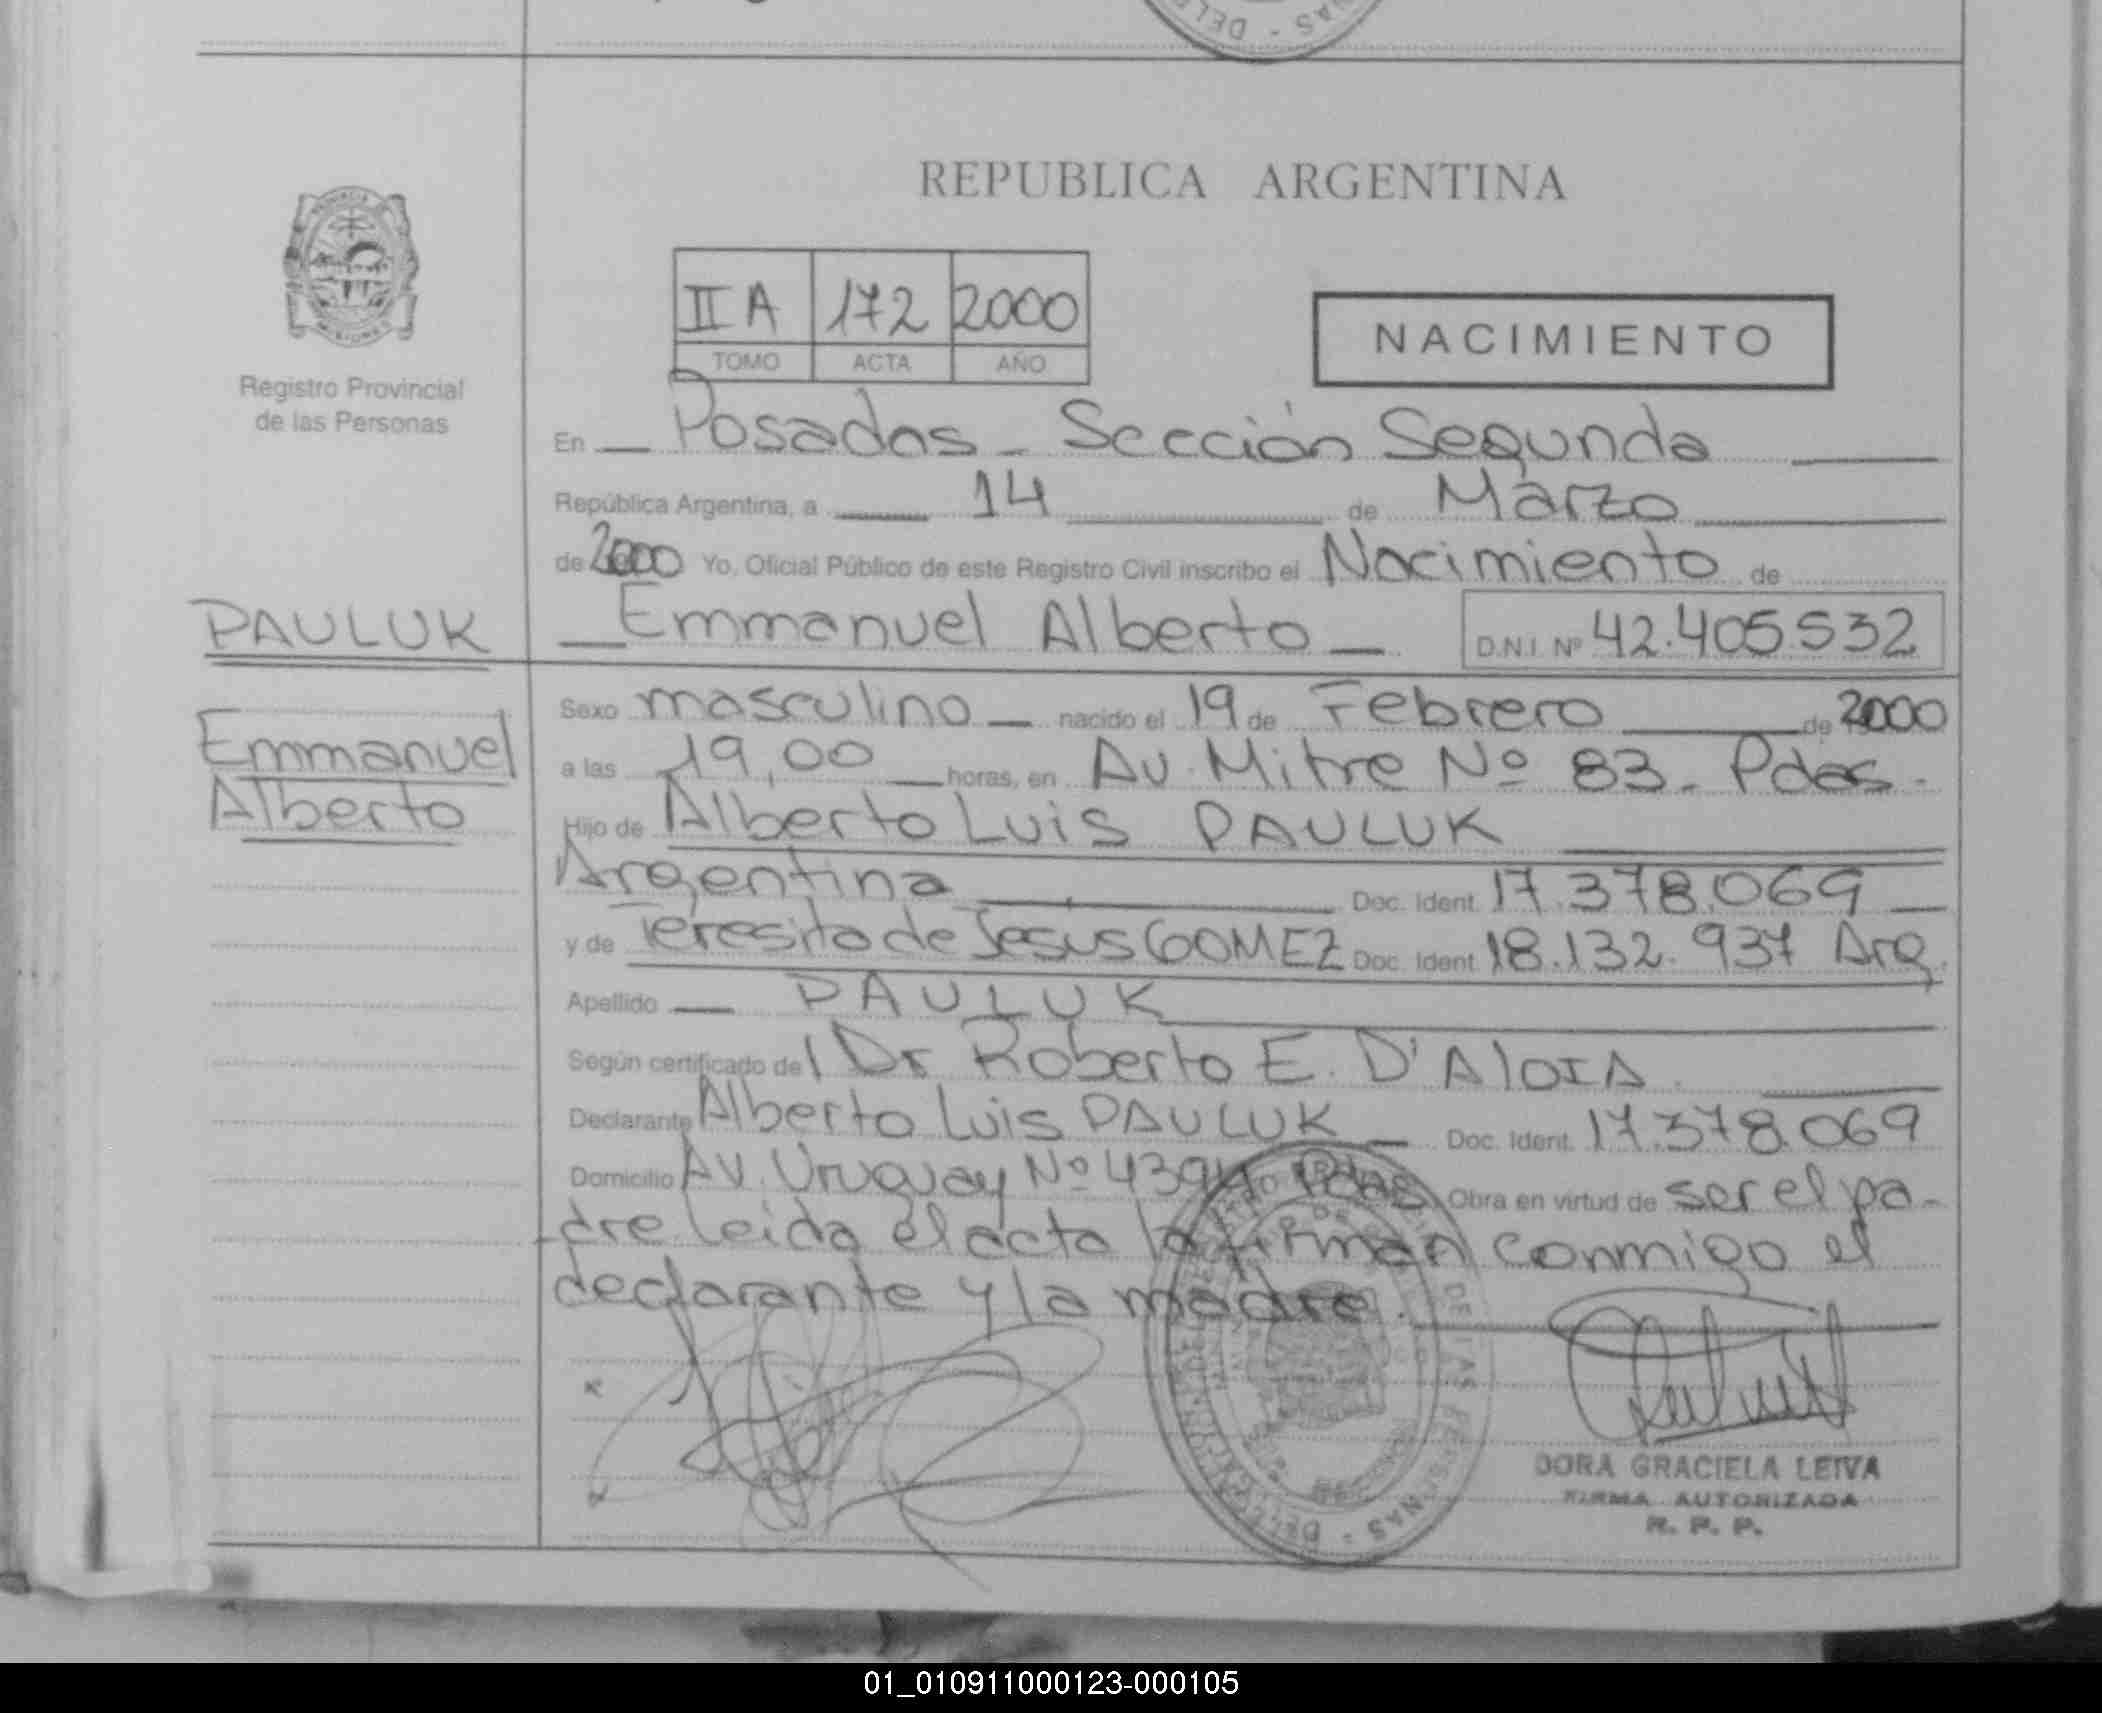 REPUBLICA ARGENTINA
Registro Provincial
de las Personas
II A 172 2000
TOMO ACTA AÑO
NACIMIENTO
En Posadas - Sección Segunda
República Argentina, a 14 de Marzo
de 2000 Yo, Oficial Público de este Registro Civil inscribo el Nacimiento de
PAULUK
Emmanuel Alberto D.N.I. Nº 42.405.532
Emmanuel
Alberto
Sexo masculino nacido el 19 de Febrero de 2000
a las 19,00 horas, en Av. Mitre Nº 83 - Pdas.
Hijo de Alberto Luis PAULUK
Argentina Doc. Ident. 17.378.069
y de Teresita de Jesus GOMEZ Doc. Ident. 18.132.937 Arg.
Apellido PAULUK
Según certificado del Dr Roberto E. D'AlOIA
Declarante Alberto Luis PAULUK Doc. Ident. 17.378.069
Domicilio Av. Uruguay Nº 4394 Pdas Obra en virtud de ser el pa-
dre leida el acta la firman conmigo el
declarante y la madre.
DORA GRACIELA LEIVA
FIRMA AUTORIZADA
R. P. P.
01_010911000123-000105